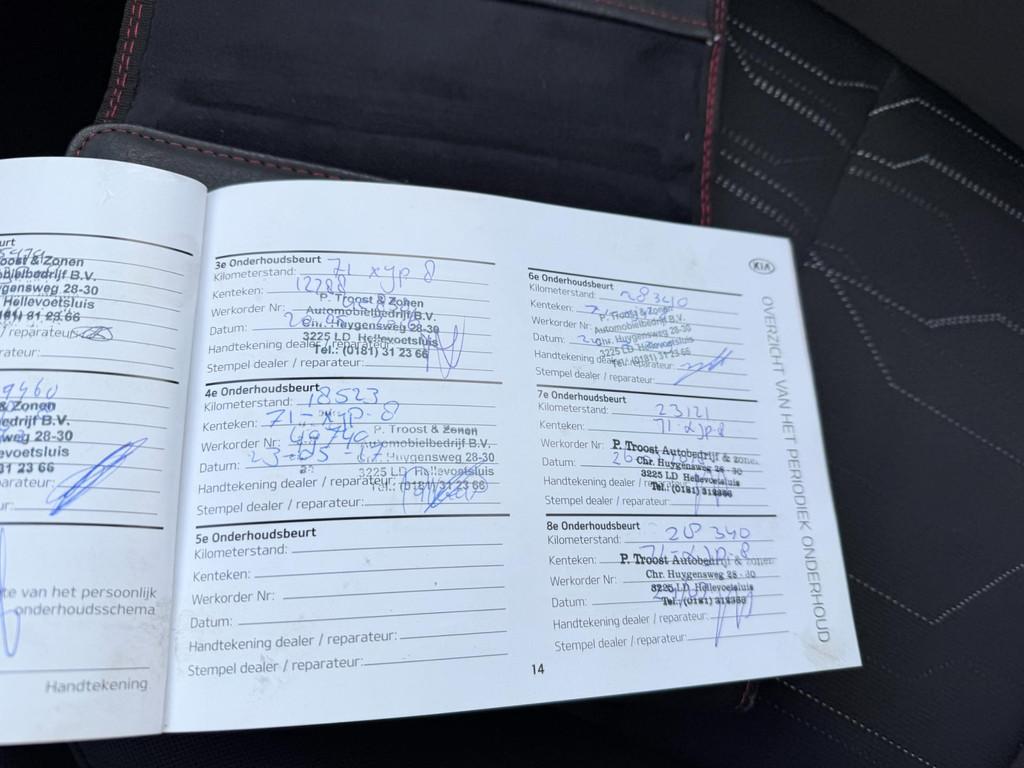 urt
oost & Zonen
obielbedrijf B.V.
ygensweg 28-30
Hellevoetsluis
31 23 66
/ reparateur:
rateur:
9460
& Zonen
edrijf B.V.
weg 28-30
voetsluis
31 23 66
parateur:
ur:
te van het persoonlijk
onderhoudsschema
Handtekening
3e Onderhoudsbeurt
Kilometerstand: 71 xyp 8
Kenteken: 12788
Werkorder Nr:
P. Troost & Zonen
Automobielbedrijf B.V.
Datum:
Chr. Huygensweg 28-30
3225 LD Hellevoetsluis
Handtekening dealer / reparateur:
Tel.: (0181) 31 23 66
Stempel dealer / reparateur:
4e Onderhoudsbeurt
Kilometerstand: 18523
Kenteken: 71-xyp-8
Werkorder Nr: 49740
P. Troost & Zonen
Automobielbedrijf B.V.
Datum: 23-05
Chr. Huygensweg 28-30
3225 LD Hellevoetsluis
Handtekening dealer / reparateur:
Tel.: (0181) 31 23 66
Stempel dealer / reparateur:
5e Onderhoudsbeurt
Kilometerstand:
Kenteken:
Werkorder Nr:
Datum:
Handtekening dealer / reparateur:
Stempel dealer / reparateur:
6e Onderhoudsbeurt
Kilometerstand: 28340
Kenteken:
P. Troost & Zonen
Werkorder Nr:
Automobielbedrijf B.V.
Datum:
Chr. Huygensweg 28-30
3225 LD Hellevoetsluis
Handtekening dealer / reparateur:
Tel.: (0181) 31 23 66
Stempel dealer / reparateur:
7e Onderhoudsbeurt
Kilometerstand: 23121
Kenteken: 71-xyp-8
Werkorder Nr:
P. Troost Autobedrijf & zonen
Datum: 26
Chr. Huygensweg 28 - 30
3225 LD Hellevoetsluis
Handtekening dealer / reparateur:
Tel.: (0181) 312366
Stempel dealer / reparateur:
8e Onderhoudsbeurt
Kilometerstand: 28340
Kenteken: 71-xyp-8
P. Troost Autobedrijf & zonen
Werkorder Nr:
Chr. Huygensweg 28 - 30
3225 LD Hellevoetsluis
Datum:
Tel.: (0181) 312366
Handtekening dealer / reparateur:
Stempel dealer / reparateur:
14
KIA
OVERZICHT VAN HET PERIODIEK ONDERHOUD